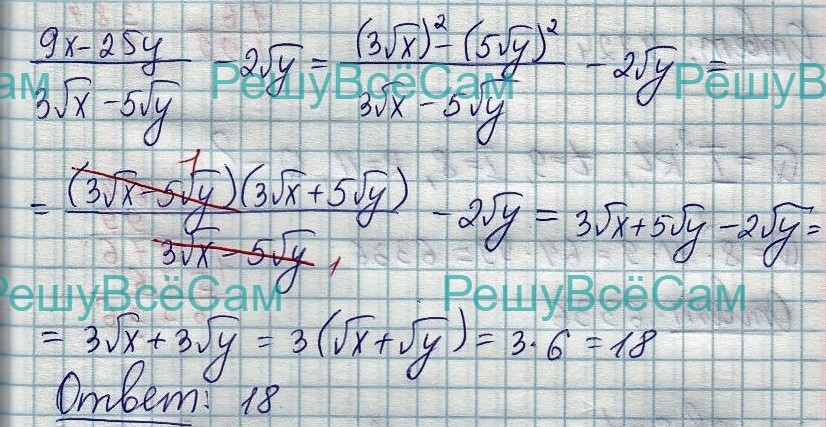 (9x-25y)/(3√x-5√y) - 2√y = ((3√x)²-(5√y)²)/(3√x-5√y) - 2√y =
РешуВсёСам РешуВсёСам
= ((3√x-5√y)(3√x+5√y))/(3√x-5√y) - 2√y = 3√x+5√y-2√y=
1
1
РешуВсёСам РешуВсёСам
= 3√x+3√y = 3(√x+√y) = 3·6 = 18
Ответ: 18